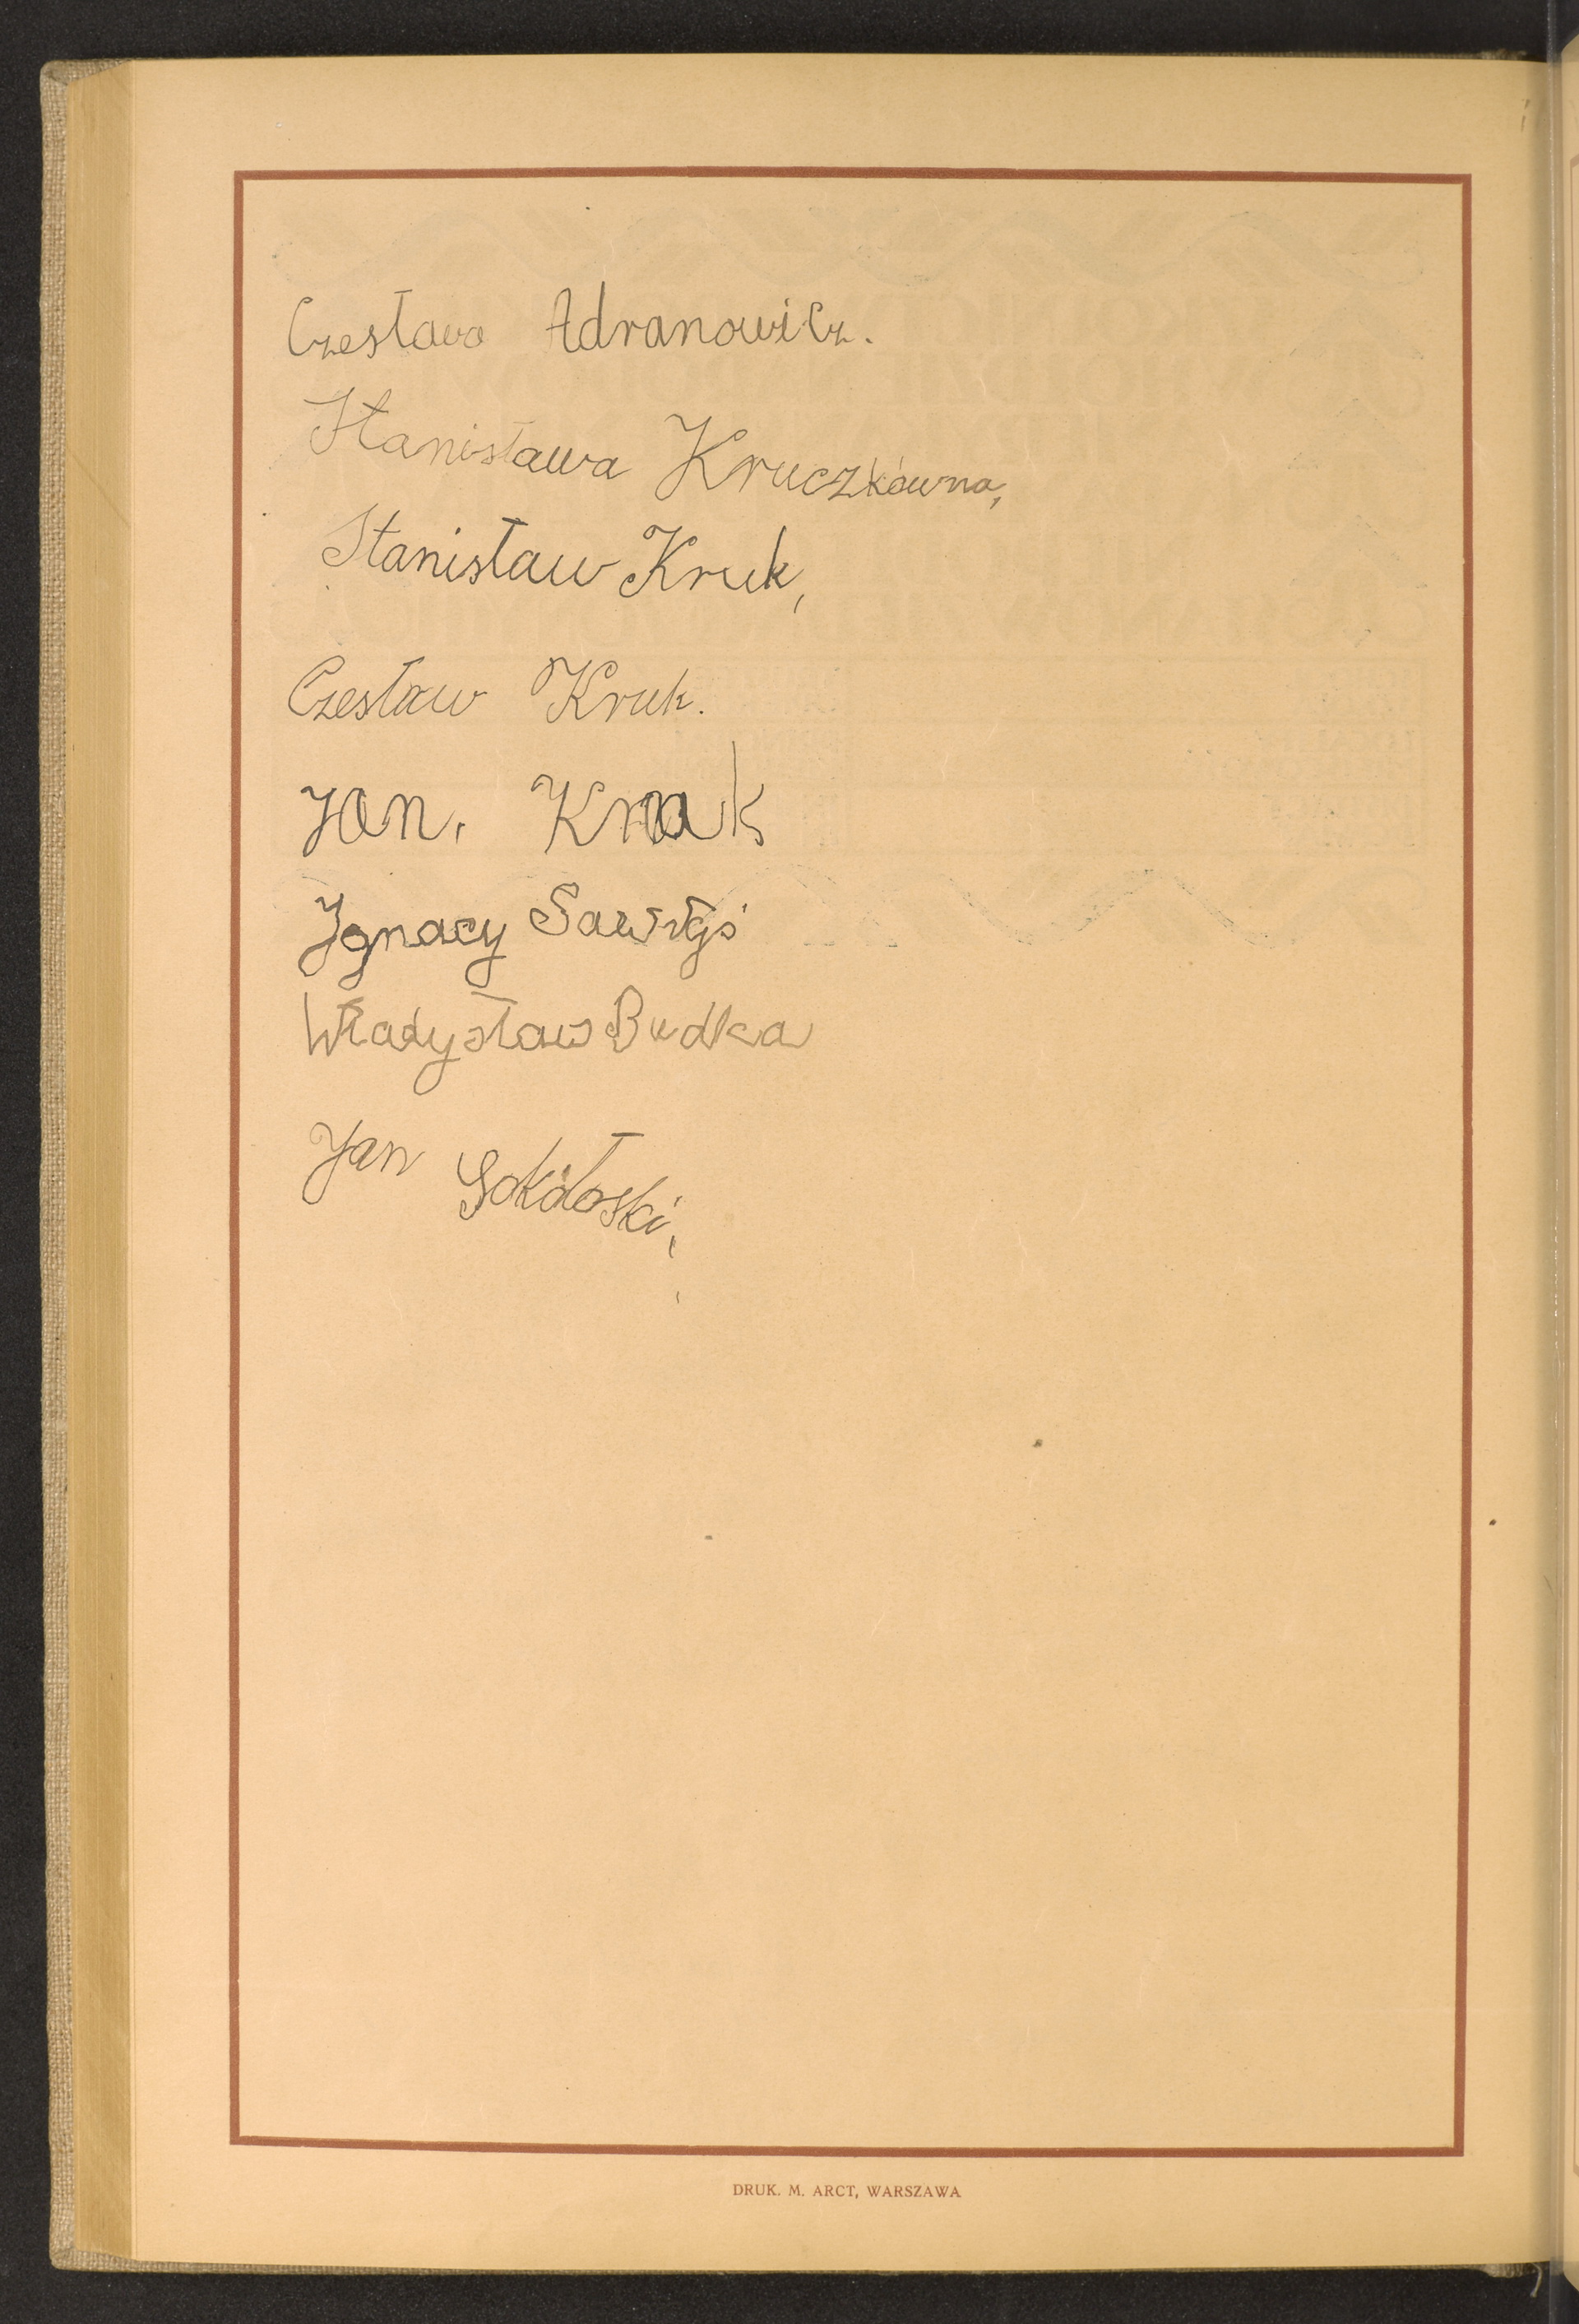 Czesława Adranowicz.
Stanisława Kruczkówna,
Stanisław Kruk,
Czesław Kruk.
Jan. Kruk
Ignacy
Władysław Budka
Jan Sokołoski,
DRUK. M. ARCT, WARSZAWA